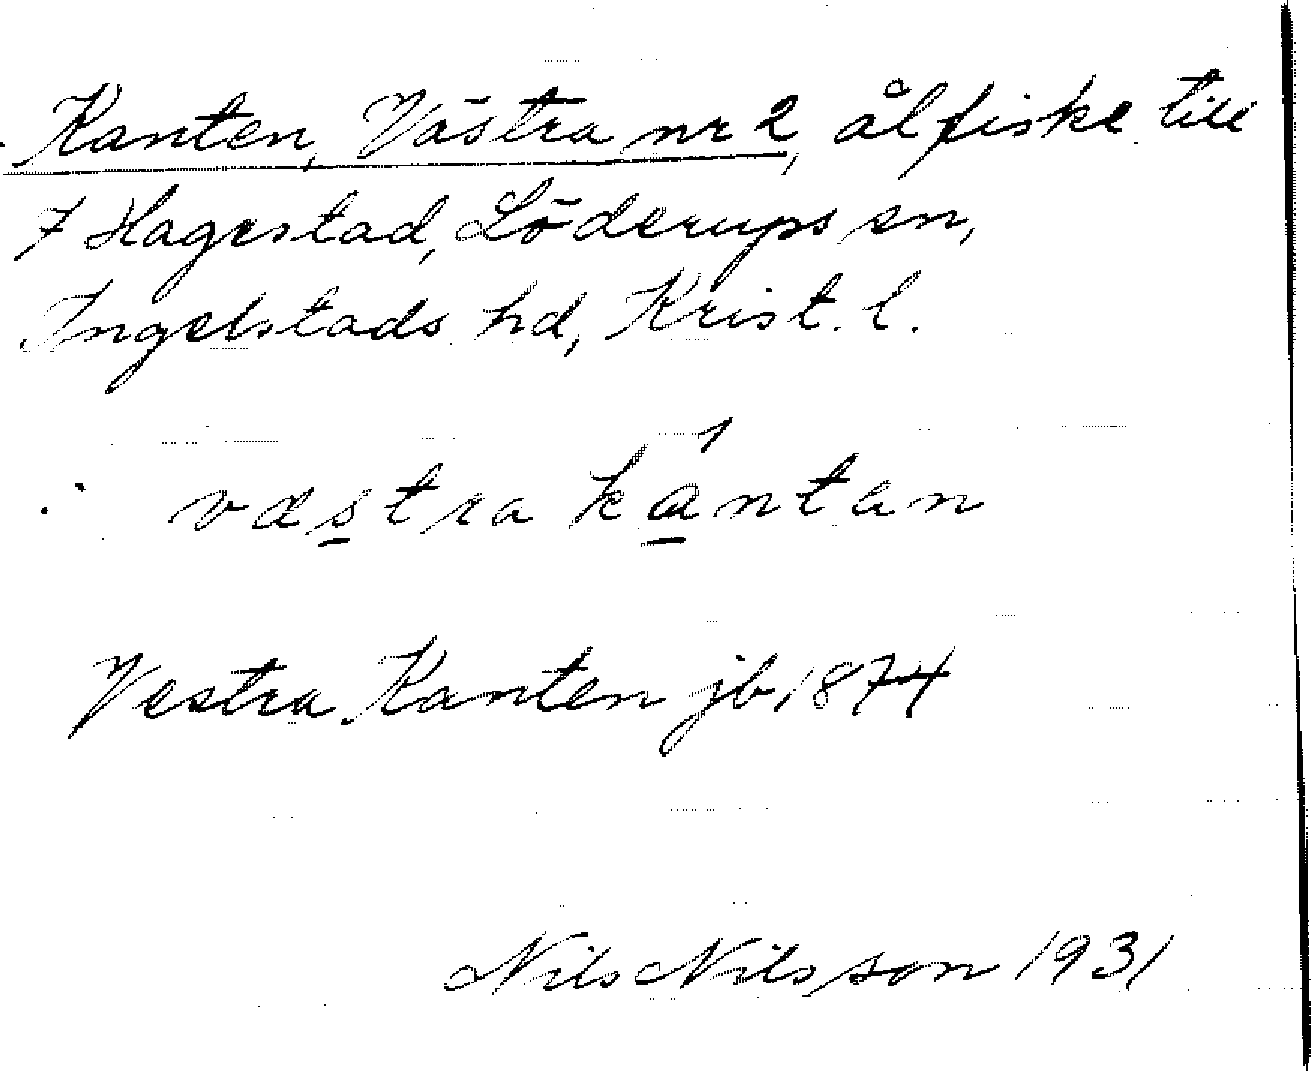 Kanten, Västra nr 2, ålfiske till
7 Hagestad, Löderups sn,
Ingelstads hd, Krist. l.
væstra kantan
Vestra Kanten jb 1874
Nils Nilsson 1931